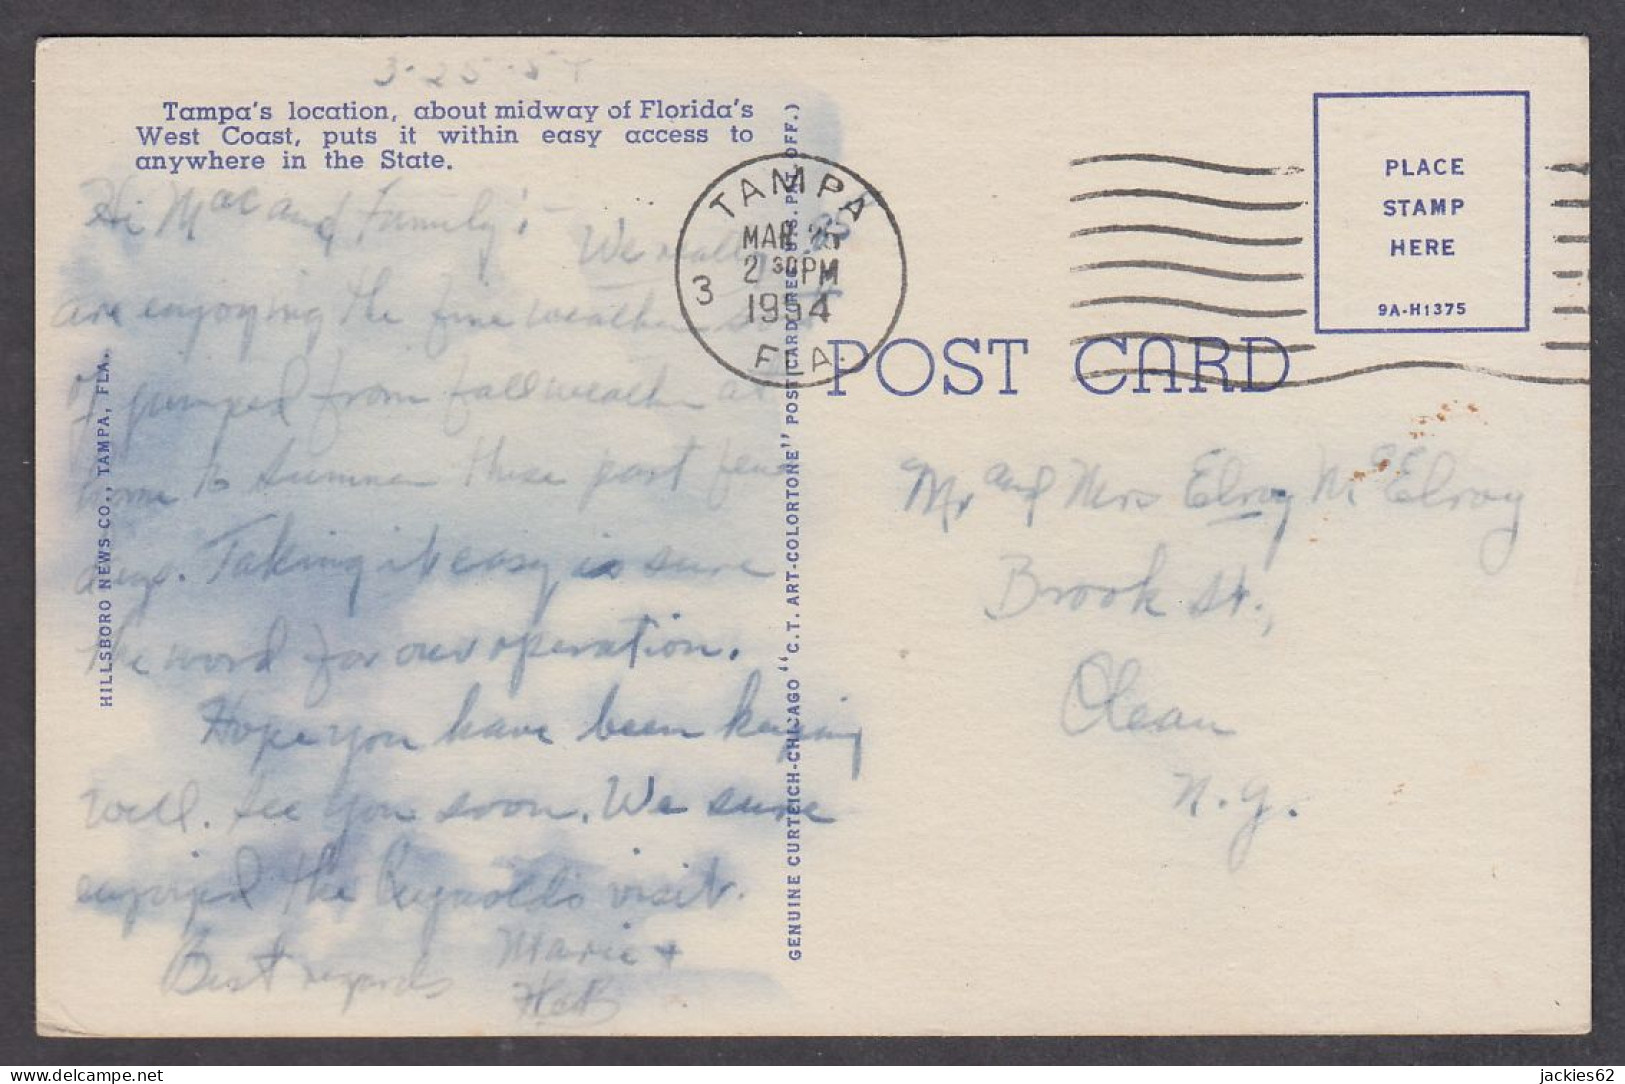 3-25-54
Tampa's location, about midway of Florida's
West Coast, puts it within easy access to
anywhere in the State.
Hi Mac and Family: -
We really
are enjoying the fine weather
jumped from fall weather at
home to summer these past few
days. Taking it easy is sure
the word for our operation.
Hope you have been keeping
well. See you soon. We sure
enjoyed the Reynolds visit.
Best regards Marie +
HILLSBORO NEWS CO., TAMPA, FLA.
GENUINE CURTEICH-CHICAGO "C.T. ART-COLORTONE" POST CARD (REG. U.S. PAT. OFF.)
TAMPA
MAR 25
2 30 PM
1954
3
FLA.
POST CARD
PLACE
STAMP
HERE
9A-H1375
Mr and Mrs Elroy McElroy
Brook St.,
Olean
N.Y.
jackies62